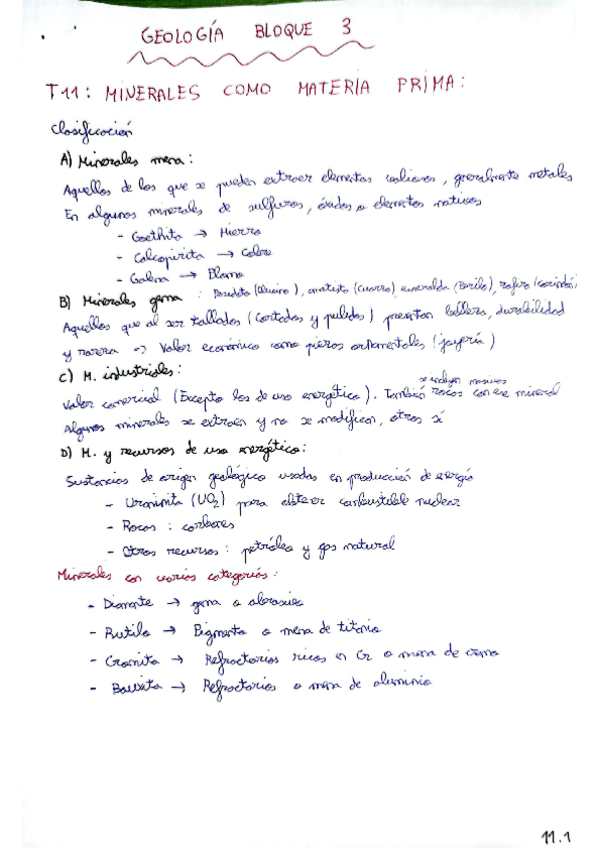 GEOLOGÍA BLOQUE 3
T11: MINERALES COMO MATERIA PRIMA:
Clasificación
A) Minerales mena:
Aquellos de los que se pueden extraer elementos valiosos, generalmente metales
En algunos minerales de sulfuros, óxidos o elementos nativos
- Goethita → Hierro
- Calcopirita → Cobre
- Galena → Plomo
B) Minerales gema: (Olivino), amatista (Cuarzo), esmeralda (Berilo), zafiro (corindón)
Aquellos que al ser tallados (Cortados y pulidos) presentan belleza, durabilidad
y rareza → Valor económico como piezas ornamentales (joyería)
C) M. industriales:
se incluyen
Valor comercial (Excepto los de uso energético). También rocas con ese mineral
Algunos minerales se extraen y no se modifican, otros sí
D) M. y recursos de uso energético:
Sustancias de origen geológico usadas en producción de energía
- Uraninita (UO2) para obtener combustible nuclear
- Rocas: carbones
- Otros recursos: petróleo y gas natural
Minerales con varias categorías:
- Diamante → gema o abrasivo
- Rutilo → Pigmento o mena de titanio
- Cromita → Refractarios ricos en Cr o mena de cromo
- Bauxita → Refractarios o mena de aluminio
11.1